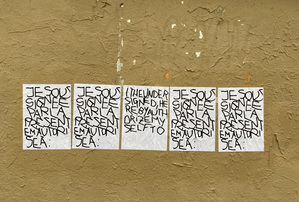 JE SOUS
SIGNÉE
PAR LA
PRÉSENT
EM'AUTORI
SEÀ:
JE SOUS
SIGNÉE
PAR LA
PRÉSENT
EM'AUTORI
SEÀ:
I THE UNDER
SIGNED, HE
REBY AUTH
ORIZE MY
SELF TO
JE SOUS
SIGNÉE
PAR LA
PRÉSENT
EM'AUTORI
SEÀ:
JE SOUS
SIGNÉE
PAR LA
PRÉSENT
EM'AUTORI
SEÀ: